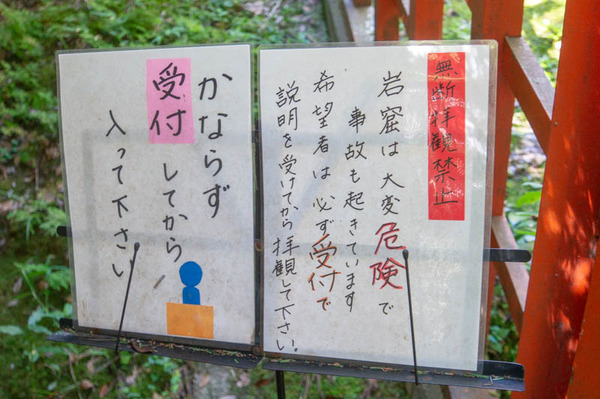 無断拝観禁止
岩窟は大変危険で
事故も起きています
希望者は必ず受付で
説明を受けてから拝観して下さい。
かならず
受付してから
入って下さい